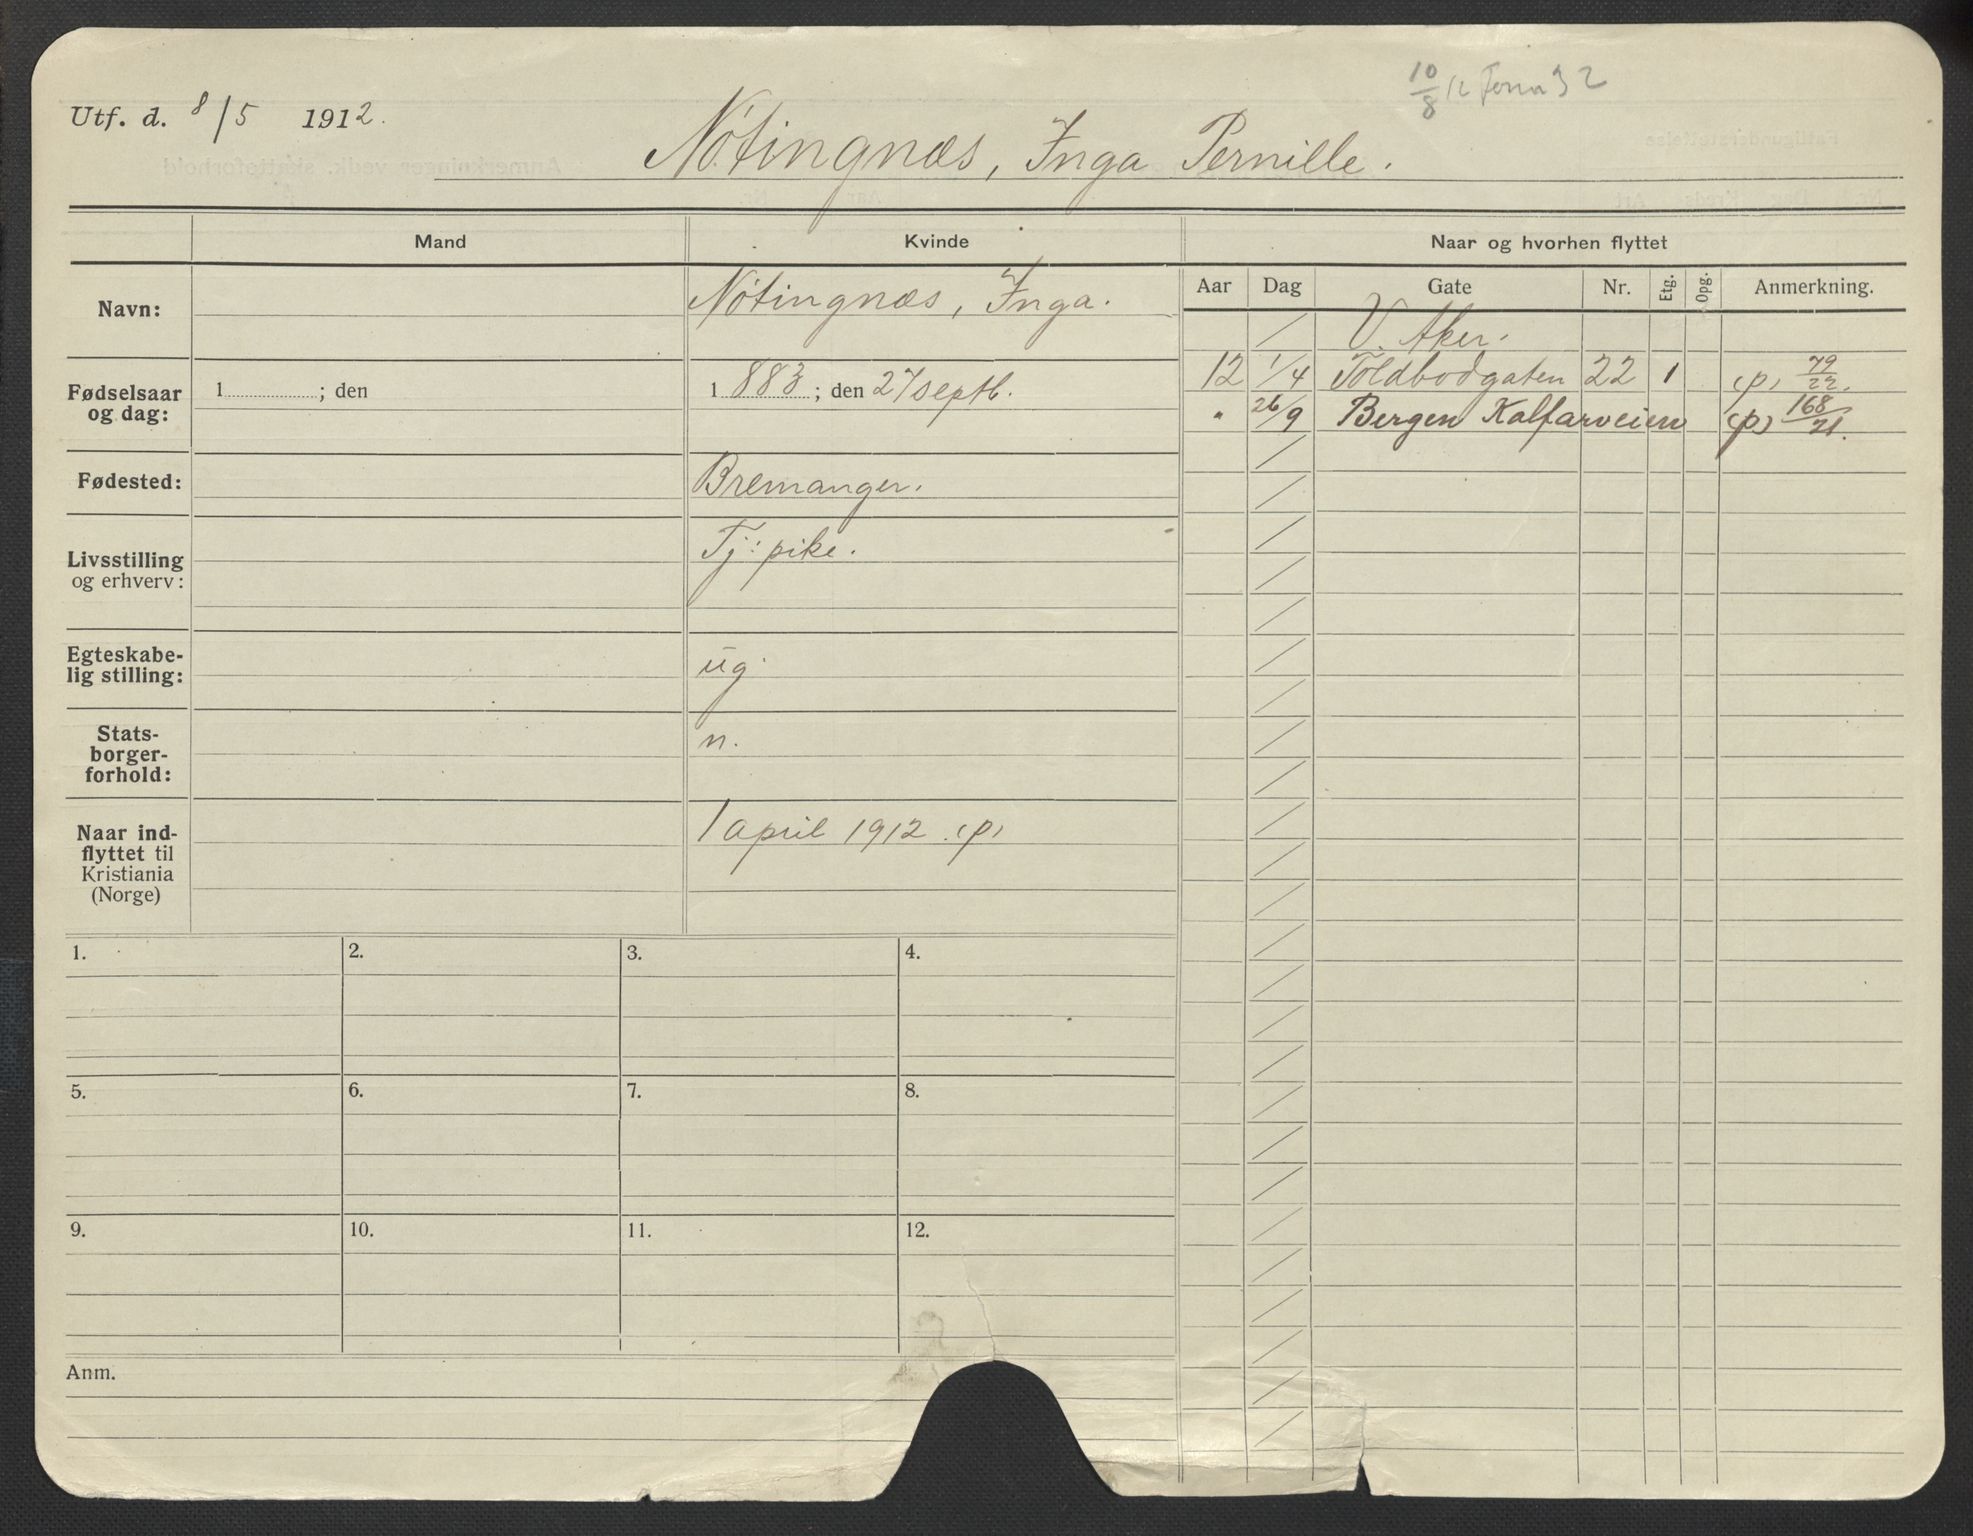 Utf. d. 8/5 1912.
Nötingnæs, Inga Pernille.
10/8 12
Mand
Kvinde
Naar og hvorhen flyttet
Aar Dag Gate Nr. Etg. Opg. Anmerkning.
Navn:
Nötingnæs, Inga.
V. Aker.
12 1/4 Toldbodgaten 22 1 (p) 79/22.
" 26/9 Bergen Kalfarveien (p) 168/21.
Fødselsaar
og dag:
1 ; den
1 883 ; den 27 septb.
Fødested:
Bremanger.
Livsstilling
og erhverv:
Tj: pike.
Egteskabe-
lig stilling:
ug.
Stats-
borger-
forhold:
n.
Naar ind-
flyttet til
Kristiania
(Norge)
1 april 1912. (p)
1. 2. 3. 4.
5. 6. 7. 8.
9. 10. 11. 12.
Anm.